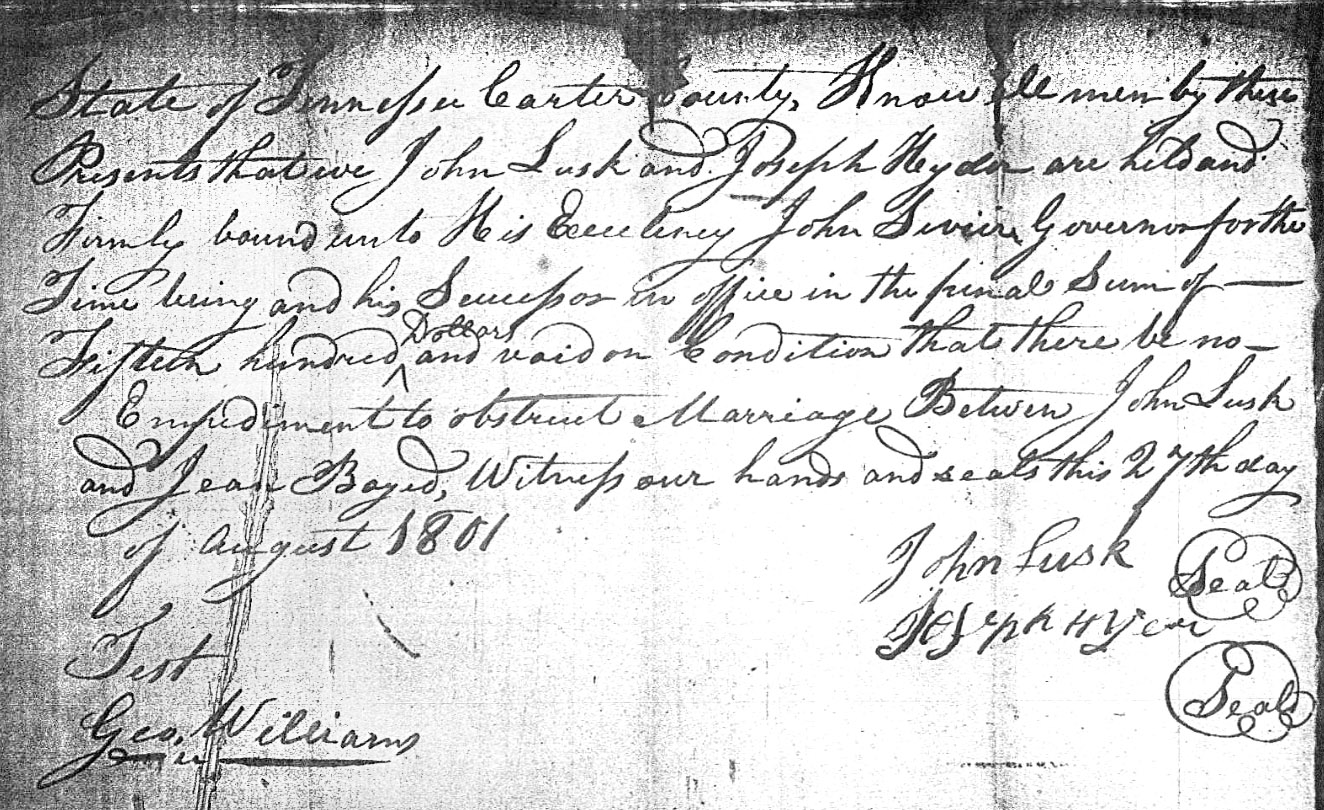 State of Tennessee Carter County, Know all men by these
Presents that we John Lusk and Joseph Hyder are held and
Firmly bound unto His Excelency John Sevier Governor for the
Time being and his Successor in office in the pinal Sum of —
Fifteen hundred ^Dollars and void on Condition that there be no—
Empediment to obstruct Marriage Betwen John Lusk
and Jean Boyed, Witness our hands and seals this 27th day
of August 1801
John Lusk Seal
Joseph Hyder Seal
Test
Geo. Williams